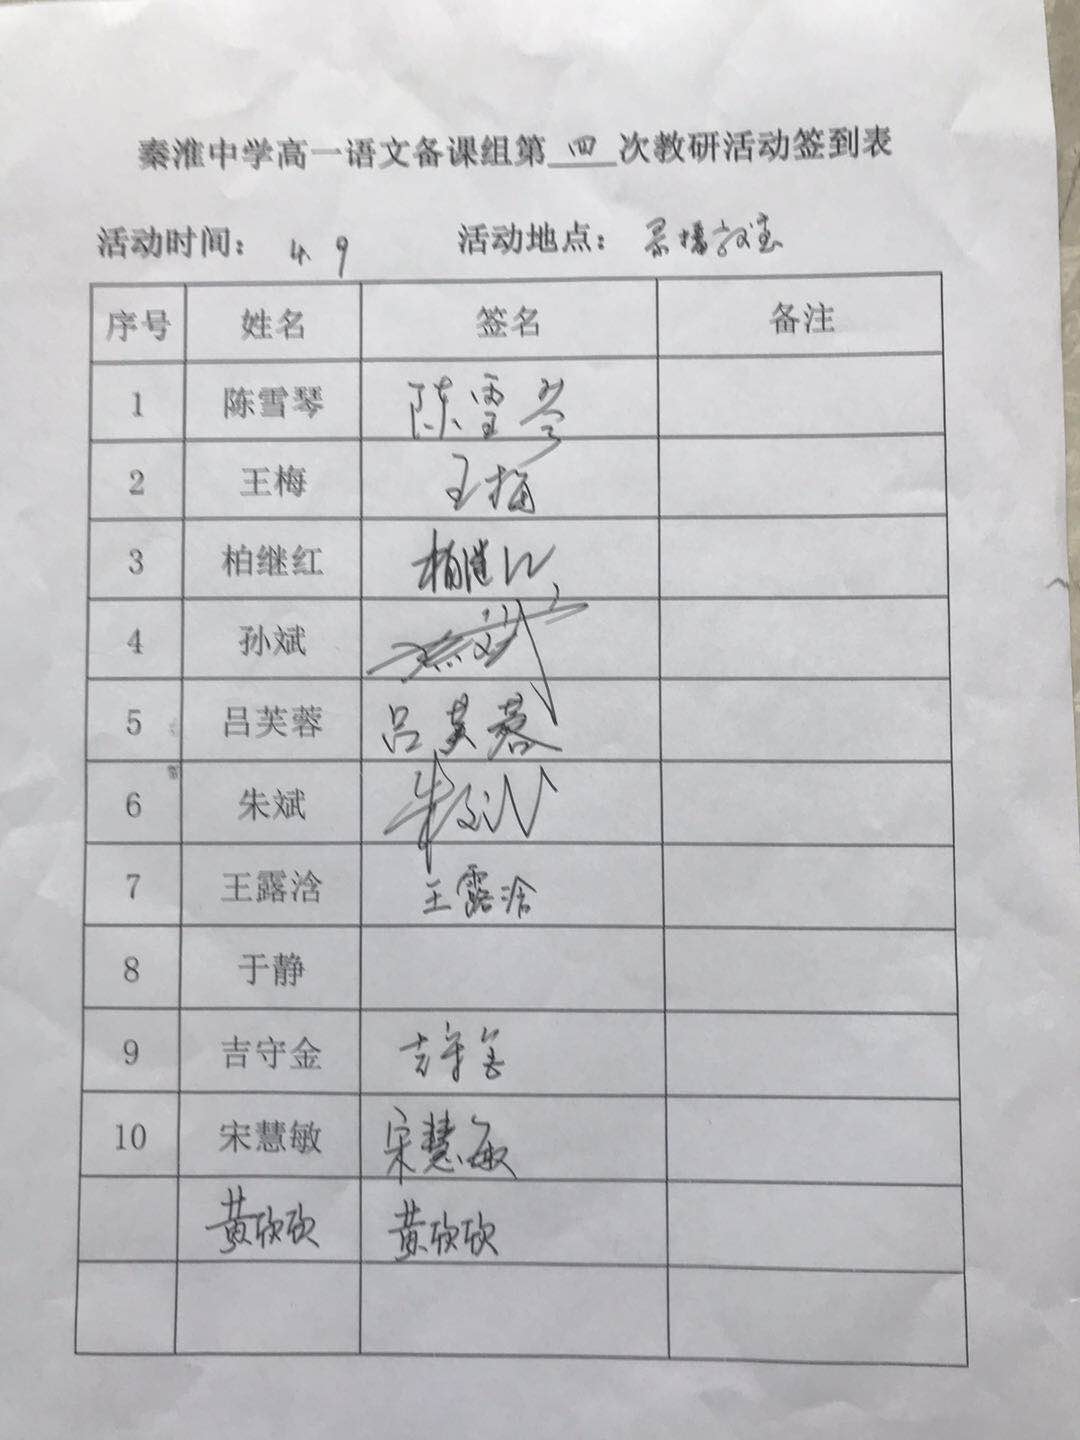 秦淮中学高一语文备课组第四次教研活动签到表
活动时间： 4.9 活动地点： 录播教室
序号 姓名 签名 备注
1 陈雪琴 陈雪琴
2 王梅 王梅
3 柏继红 柏继红
4 孙斌 孙斌
5 吕芙蓉 吕芙蓉
6 朱斌 朱斌
7 王露浛 王露浛
8 于静
9 吉守金 吉守金
10 宋慧敏 宋慧敏
黄欣欣 黄欣欣